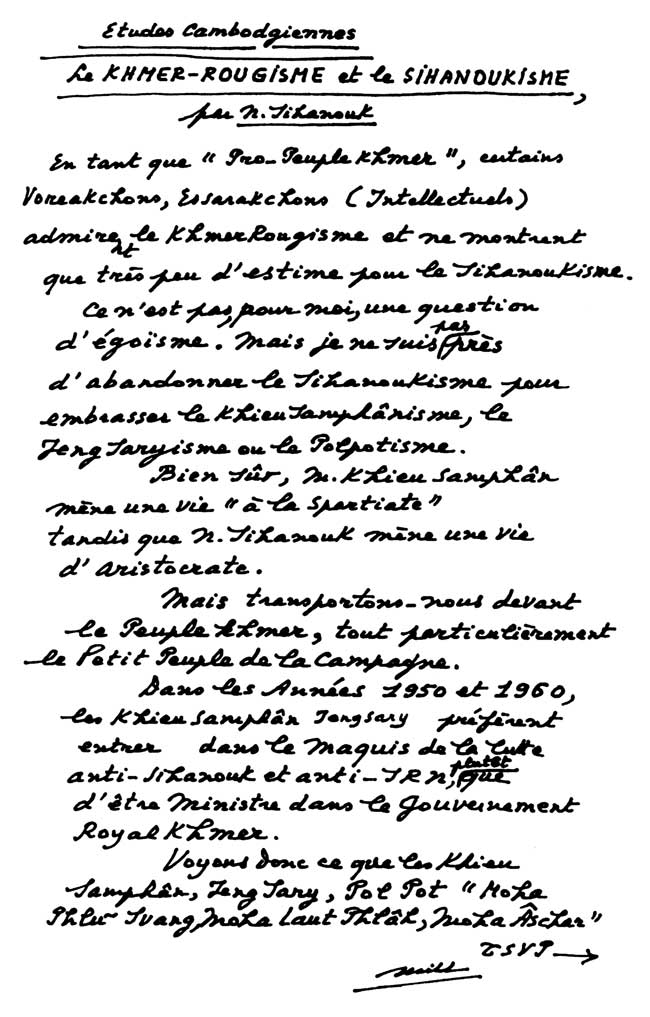 Etudes Cambodgiennes
Le KHMER-ROUGISME et le SIHANOUKISME,
par N. Sihanouk
En tant que " Pro-Peuple Khmer ", certains
Voreakchons, Essarakchons ( Intellectuels )
admirent le Khmer Rougisme et ne montrent
que très peu d'estime pour le Sihanoukisme.
Ce n'est pas, pour moi, une question
d'égoïsme. Mais je ne suis pas près
d'abandonner le Sihanoukisme pour
embrasser le Khieu Samphânisme, le
Ieng Saryisme ou le Polpotisme.
Bien sûr, M. Khieu Samphân
mène une vie " à la Spartiate "
tandis que N. Sihanouk mène une vie
d'Aristocrate.
Mais transportons-nous devant
le Peuple Khmer, tout particulièrement
le Petit Peuple de la Campagne.
Dans les Années 1950 et 1960,
les Khieu Samphân Iengsary préfèrent
entrer dans le Maquis de la lutte
anti-Sihanouk et anti-SRN, plutôt que
d'être Ministre dans le Gouvernement
Royal Khmer.
Voyons donc ce que les Khieu
Samphân, Ieng Sary, Pol Pot " Moha
Phlu Svang, Moha Laut Phlâh, Moha Âschar "
TSVP →